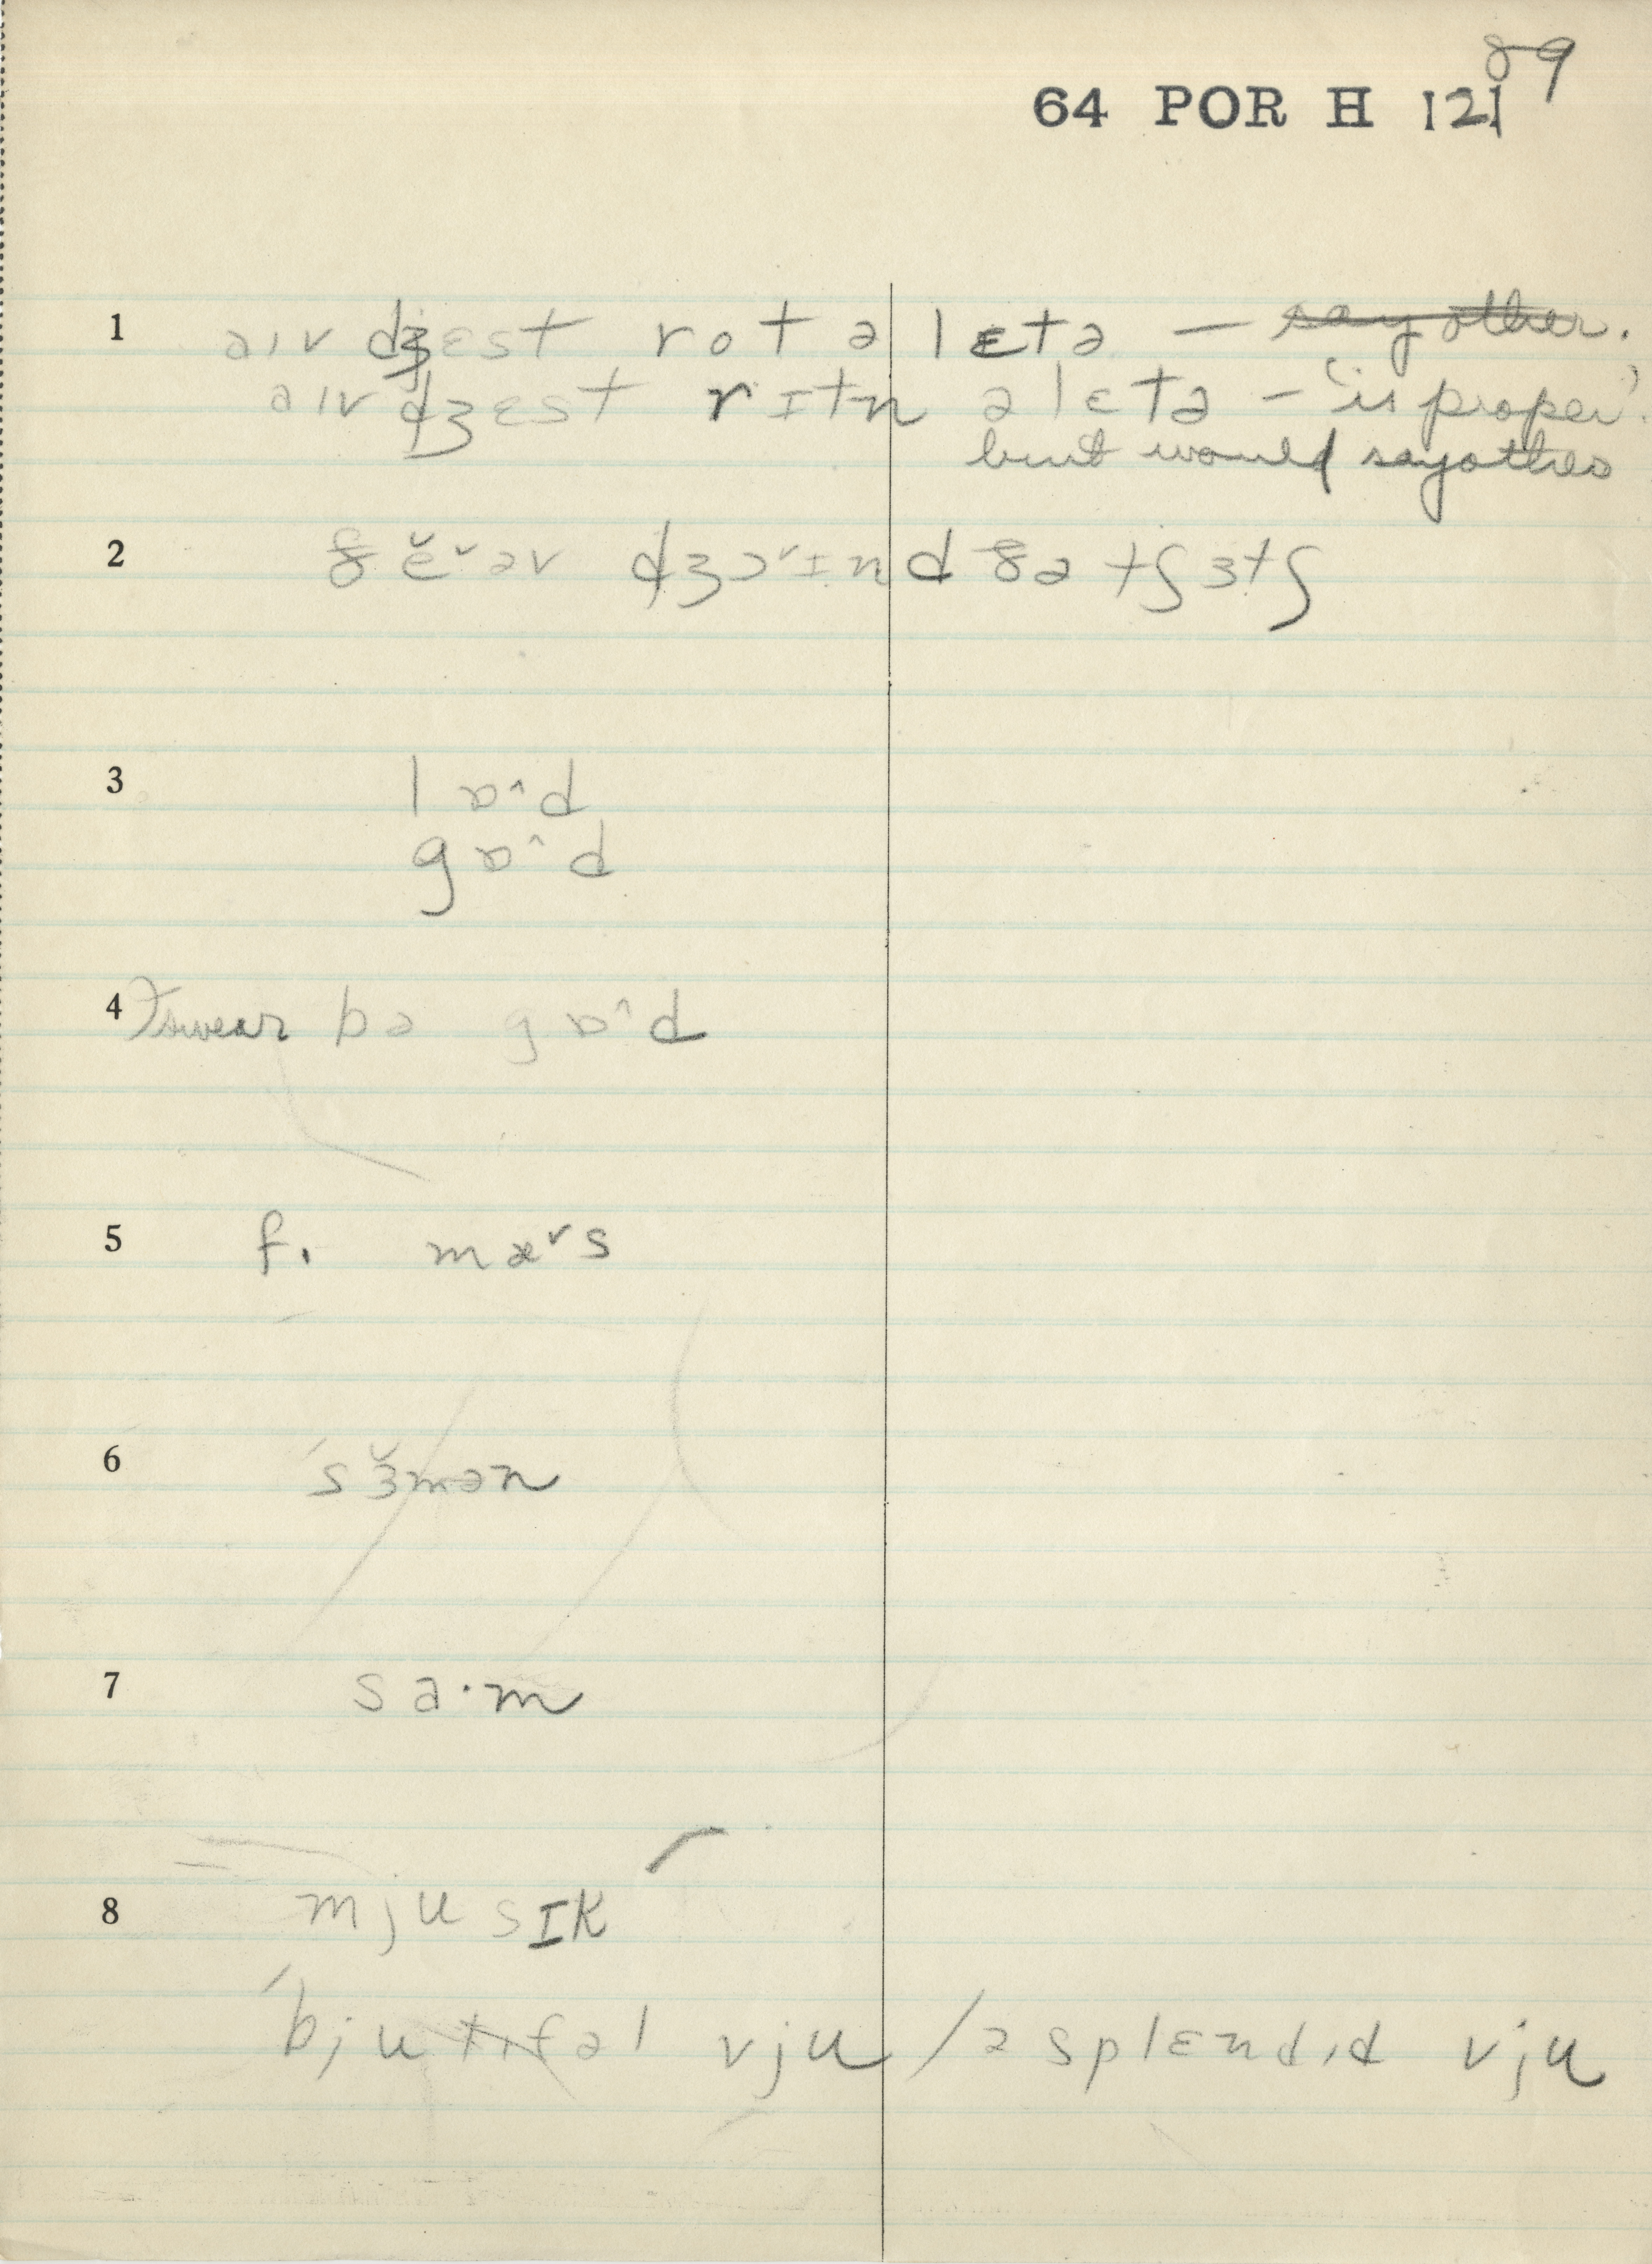 89
64 POR H 121
1 aɪv dʒɛst rot ə lɛtə — say other.
aɪv dʒɛst rɪtn ə lɛtə – 'is proper'.
but would say other
2 ðĕ˅əv dʒɔ˅ɪnd ðə tʃɜtʃ
3 lɒ^d
gɒ^d
4 I swear bə gɒ^d
5 f. mæ˅s
6 ´sɜ̆mən
7 sa·m
8 mjusɪk
´bjutɪfəl vju / ə splɛndɪd vju